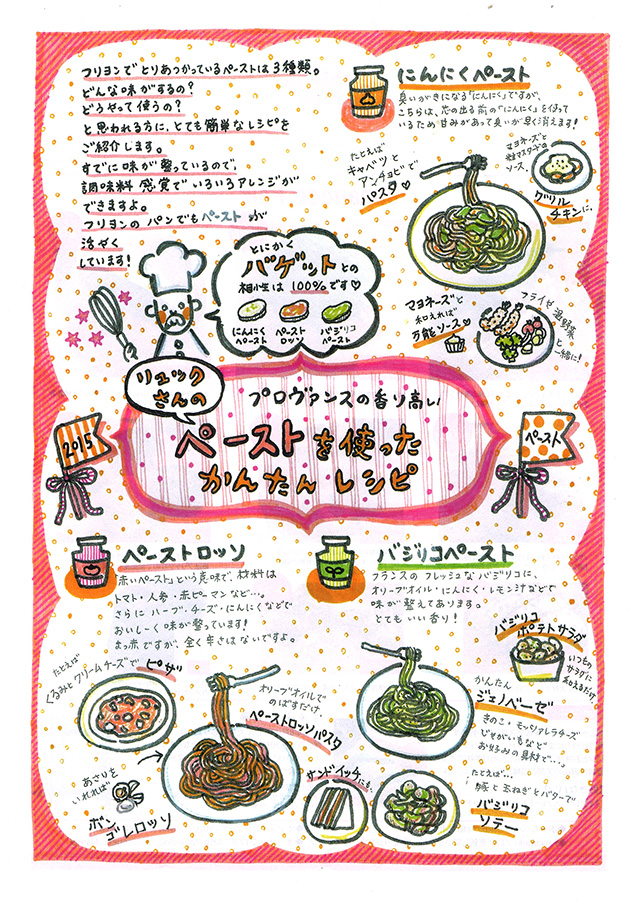 フリヨンでとりあつかっているペーストは3種類。
どんな味がするの?
どうやって使うの?
と思われる方に、とても簡単なレシピを
ご紹介します。
すでに味が整っているので、
調味料感覚でいろいろアレンジが
できますよ。
フリヨンのパンでもペーストが
活やく
しています!
にんにくペースト
臭いがきになる「にんにく」ですが、
こちらは、芯の出る前の「にんにく」を使って
いるため甘みがあって臭いが早く消えます!
たとえば
キャベツと
アンチョビで
パスタ♡
マヨネーズと
粒マスタードの
ソース、
グリル
チキンに。
マヨネーズと
和えれば
万能ソース♡
フライや温野菜
と
一緒に!
とにかく
バゲットとの
相性は100%です♡
にんにく
ペースト
ペースト
ロッソ
バジリコ
ペースト
リュック
さんの
プロヴァンスの香り高い
ペーストを使った
かんたんレシピ
2015
ペースト
ペーストロッソ
「赤いペースト」という意味で、材料は
トマト・人参・赤ピーマンなど…。
さらにハーブ・チーズ・にんにくなどで
おいしーく味が整っています!
まっ赤ですが、全く辛さはないですよ。
たとえば
くるみとクリームチーズで
ピザ
オリーブオイルで
のばすだけ
ペーストロッソパスタ
あさりを
いれれば
ボン
ゴレロッソ
バジリコペースト
フランスのフレッシュなバジリコに、
オリーブオイル・にんにく・レモン汁などで
味が整えてあります。
とてもいい香り!
バジリコ
ポテトサラダ
いつもの
サラダに
和えるだけ
かんたん
ジェノベーゼ
きのこ・モッツァレラチーズ
じゃがいもなど
お好みの具材で…。
サンドイッチにも。
たとえば…
豚と玉ねぎとバターで
バジリコ
ソテー